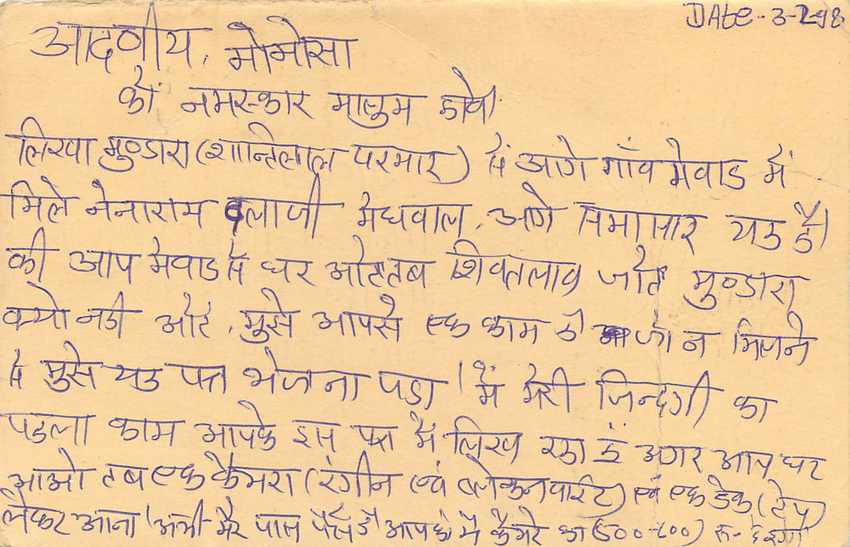 DAte- 3-2-98
आदणीय, मोमोसा
को नमस्कार मालुम होवे
लिखा मुण्डारा (शान्तिलाल परमार) से आगे गाँव मेवाड में
मिले नेनाराम लाजी मेघवाल, आगे समासार यह है।
की आप मेवाड से घर ओते तब शिवतलाव जाते मुण्डारा
क्यो नही ओते, मुसे आपसे एक काम है जो न मिलने
से मुसे यह पत्र भेजना पडा। मैं मेरी जिन्दगी का
पहला काम आपके इस पत्र में लिख रहा हूँ अगर आप घर
आओ तब एक कैमरा (रंगीन एवं ब्लेकनवाईट) एवं एक डेक (टेप)
लेकर आना। अभी मेरे पास पैसे है आपको मैं कैमरे का रू-